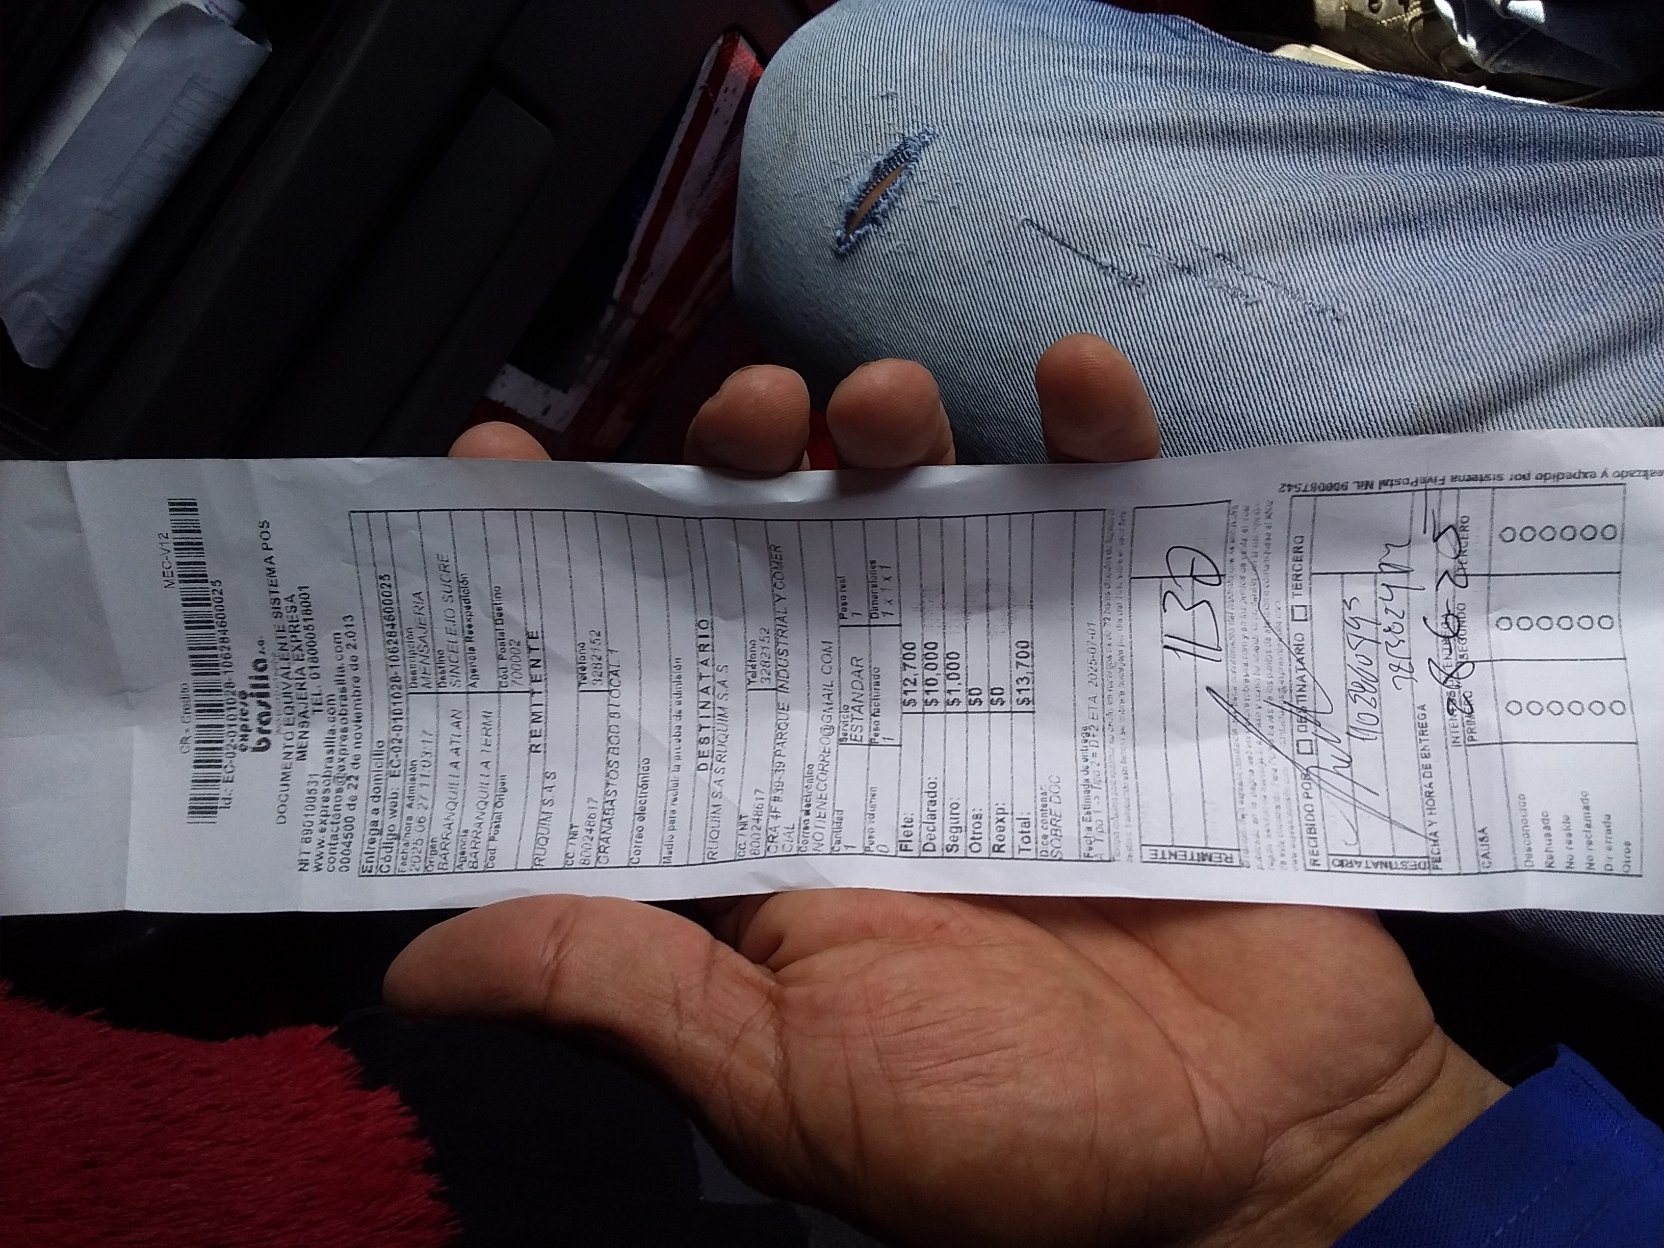 CR - Credito MEC-V12
Id: EC-02-0101028-10628460002​5
expreso
brasilia s.a.
DOCUMENTO EQUIVALENTE SISTEMA POS
MENSAJERIA EXPRESA
NIT 890100531 TEL. 018000518001
www.expresobrasilia.com
contactenos@expresobrasilia.com
0004500 de 22 de noviembre de 2.013
Entrega a domicilio
Código web: EC-02-0101028-106284600025
Fecha/hora Admisión Descripción
2025 06 27 11:03:17 MENSAJERIA
Origen Destino
BARRANQUILLA ATLAN SINCELEJO SUCRE
Agencia Agencia Reexpedición
BARRANQUILLA TERMI
Cod. Postal Origen Cod. Postal Destino
700002
REMITENTE
RUQUIM S A S
CC / NIT Teléfono
800248617 3282152
GRANABASTOS BOD 8 LOCAL 1
Correo electrónico
Medio para recibir la prueba de admisión
DESTINATARIO
RUQUIM S.A.S RUQUIM S.A.S
CC / NIT Teléfono
800248617 3282152
CRA 4F #39-39 PARQUE INDUSTRIAL Y COMER
CIAL
Correo electrónico
NOTIENECORREO@GMAIL.COM
Cantidad Servicio Peso real
1 ESTANDAR 1
Peso volumen Peso facturado Dimensiones
0 1 1 x 1 x 1
Flete: $12,700
Declarado: $10,000
Seguro: $1,000
Otros: $0
Reexp: $0
Total: $13,700
Dice contener
SOBRE DOC
Fecha Estimada de entrega
REMITENTE
1130
RECIBIDO POR DESTINATARIO TERCERO
DESTINATARIO
FECHA Y HORA DE ENTREGA
PRIMERO SEGUNDO TERCERO
CAUSA
Desconocido
Rehusado
No reside
No reclamado
Dir errada
Otros
Realizado y expedido por sistema FivePostal Nit. 900087542